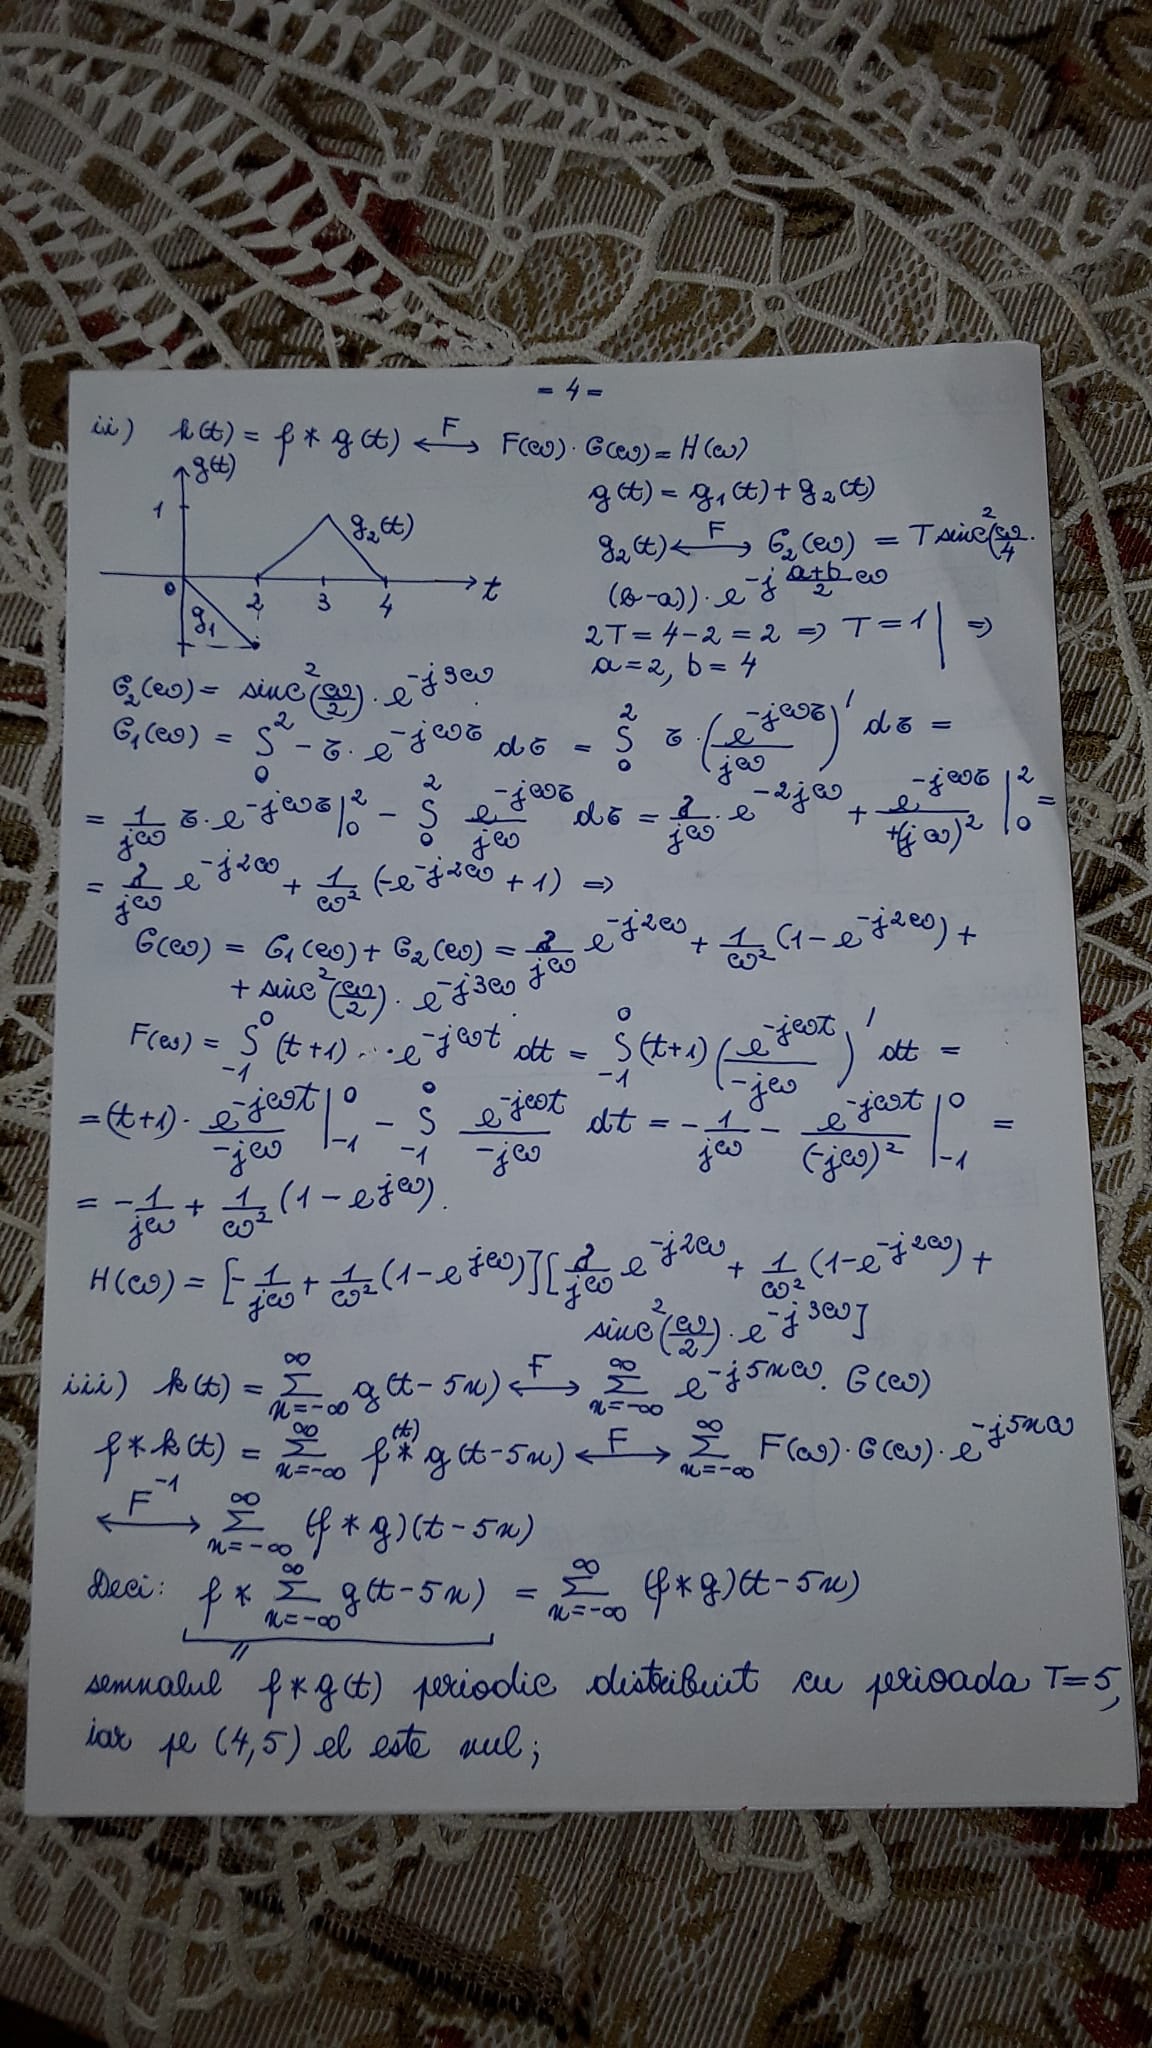 - 4 -
ii) h(t) = f * g(t) ⟷F F(ω) · G(ω) = H(ω)
g(t)
g(t) = g₁(t) + g₂(t)
1
g₂(t)
g₂(t) ⟷F G₂(ω) = T sinc²(ω/4 ·
(b-a)) · e^(-j (a+b)/2 ω)
0 2 3 4 t
g₁
2T = 4-2 = 2 ⇒ T = 1 | ⇒
a = 2, b = 4
G₂(ω) = sinc²(ω/2) · e^(-j3ω)
G₁(ω) = ∫₀² -τ · e^(-jωτ) dτ = ∫₀² τ · (e^(-jωτ)/jω)' dτ =
= 1/jω τ · e^(-jωτ) |₀² - ∫₀² e^(-jωτ)/jω dτ = 2/jω · e^(-2jω) + e^(-jωτ)/+(jω)² |₀² =
= 2/jω e^(-j2ω) + 1/ω² (-e^(-j2ω) + 1) ⇒
G(ω) = G₁(ω) + G₂(ω) = 2/jω e^(-j2ω) + 1/ω² (1 - e^(-j2ω)) +
+ sinc²(ω/2) · e^(-j3ω)
F(ω) = ∫₋₁⁰ (t+1) · e^(-jωt) dt = ∫₋₁⁰ (t+1) (e^(-jωt)/-jω)' dt =
= (t+1) · e^(-jωt)/-jω |₋₁⁰ - ∫₋₁⁰ e^(-jωt)/-jω dt = - 1/jω - e^(-jωt)/(-jω)² |₋₁⁰ =
= - 1/jω + 1/ω² (1 - e^(jω)).
H(ω) = [- 1/jω + 1/ω² (1 - e^(jω))][2/jω e^(-j2ω) + 1/ω² (1 - e^(-j2ω)) +
sinc²(ω/2) · e^(-j3ω)]
iii) k(t) = Σ_{n=-∞}^{∞} g(t-5n) ⟷F Σ_{n=-∞}^{∞} e^(-j5nω) · G(ω)
f * k(t) = Σ_{n=-∞}^{∞} f(t) * g(t-5n) ⟷F Σ_{n=-∞}^{∞} F(ω) · G(ω) · e^(-j5nω)
⟷F⁻¹ Σ_{n=-∞}^{∞} (f * g)(t-5n)
Deci: f * Σ_{n=-∞}^{∞} g(t-5n) = Σ_{n=-∞}^{∞} (f * g)(t-5n)
semnalul f * g(t) periodic distribuit cu perioada T=5,
iar pe (4,5) el este nul;